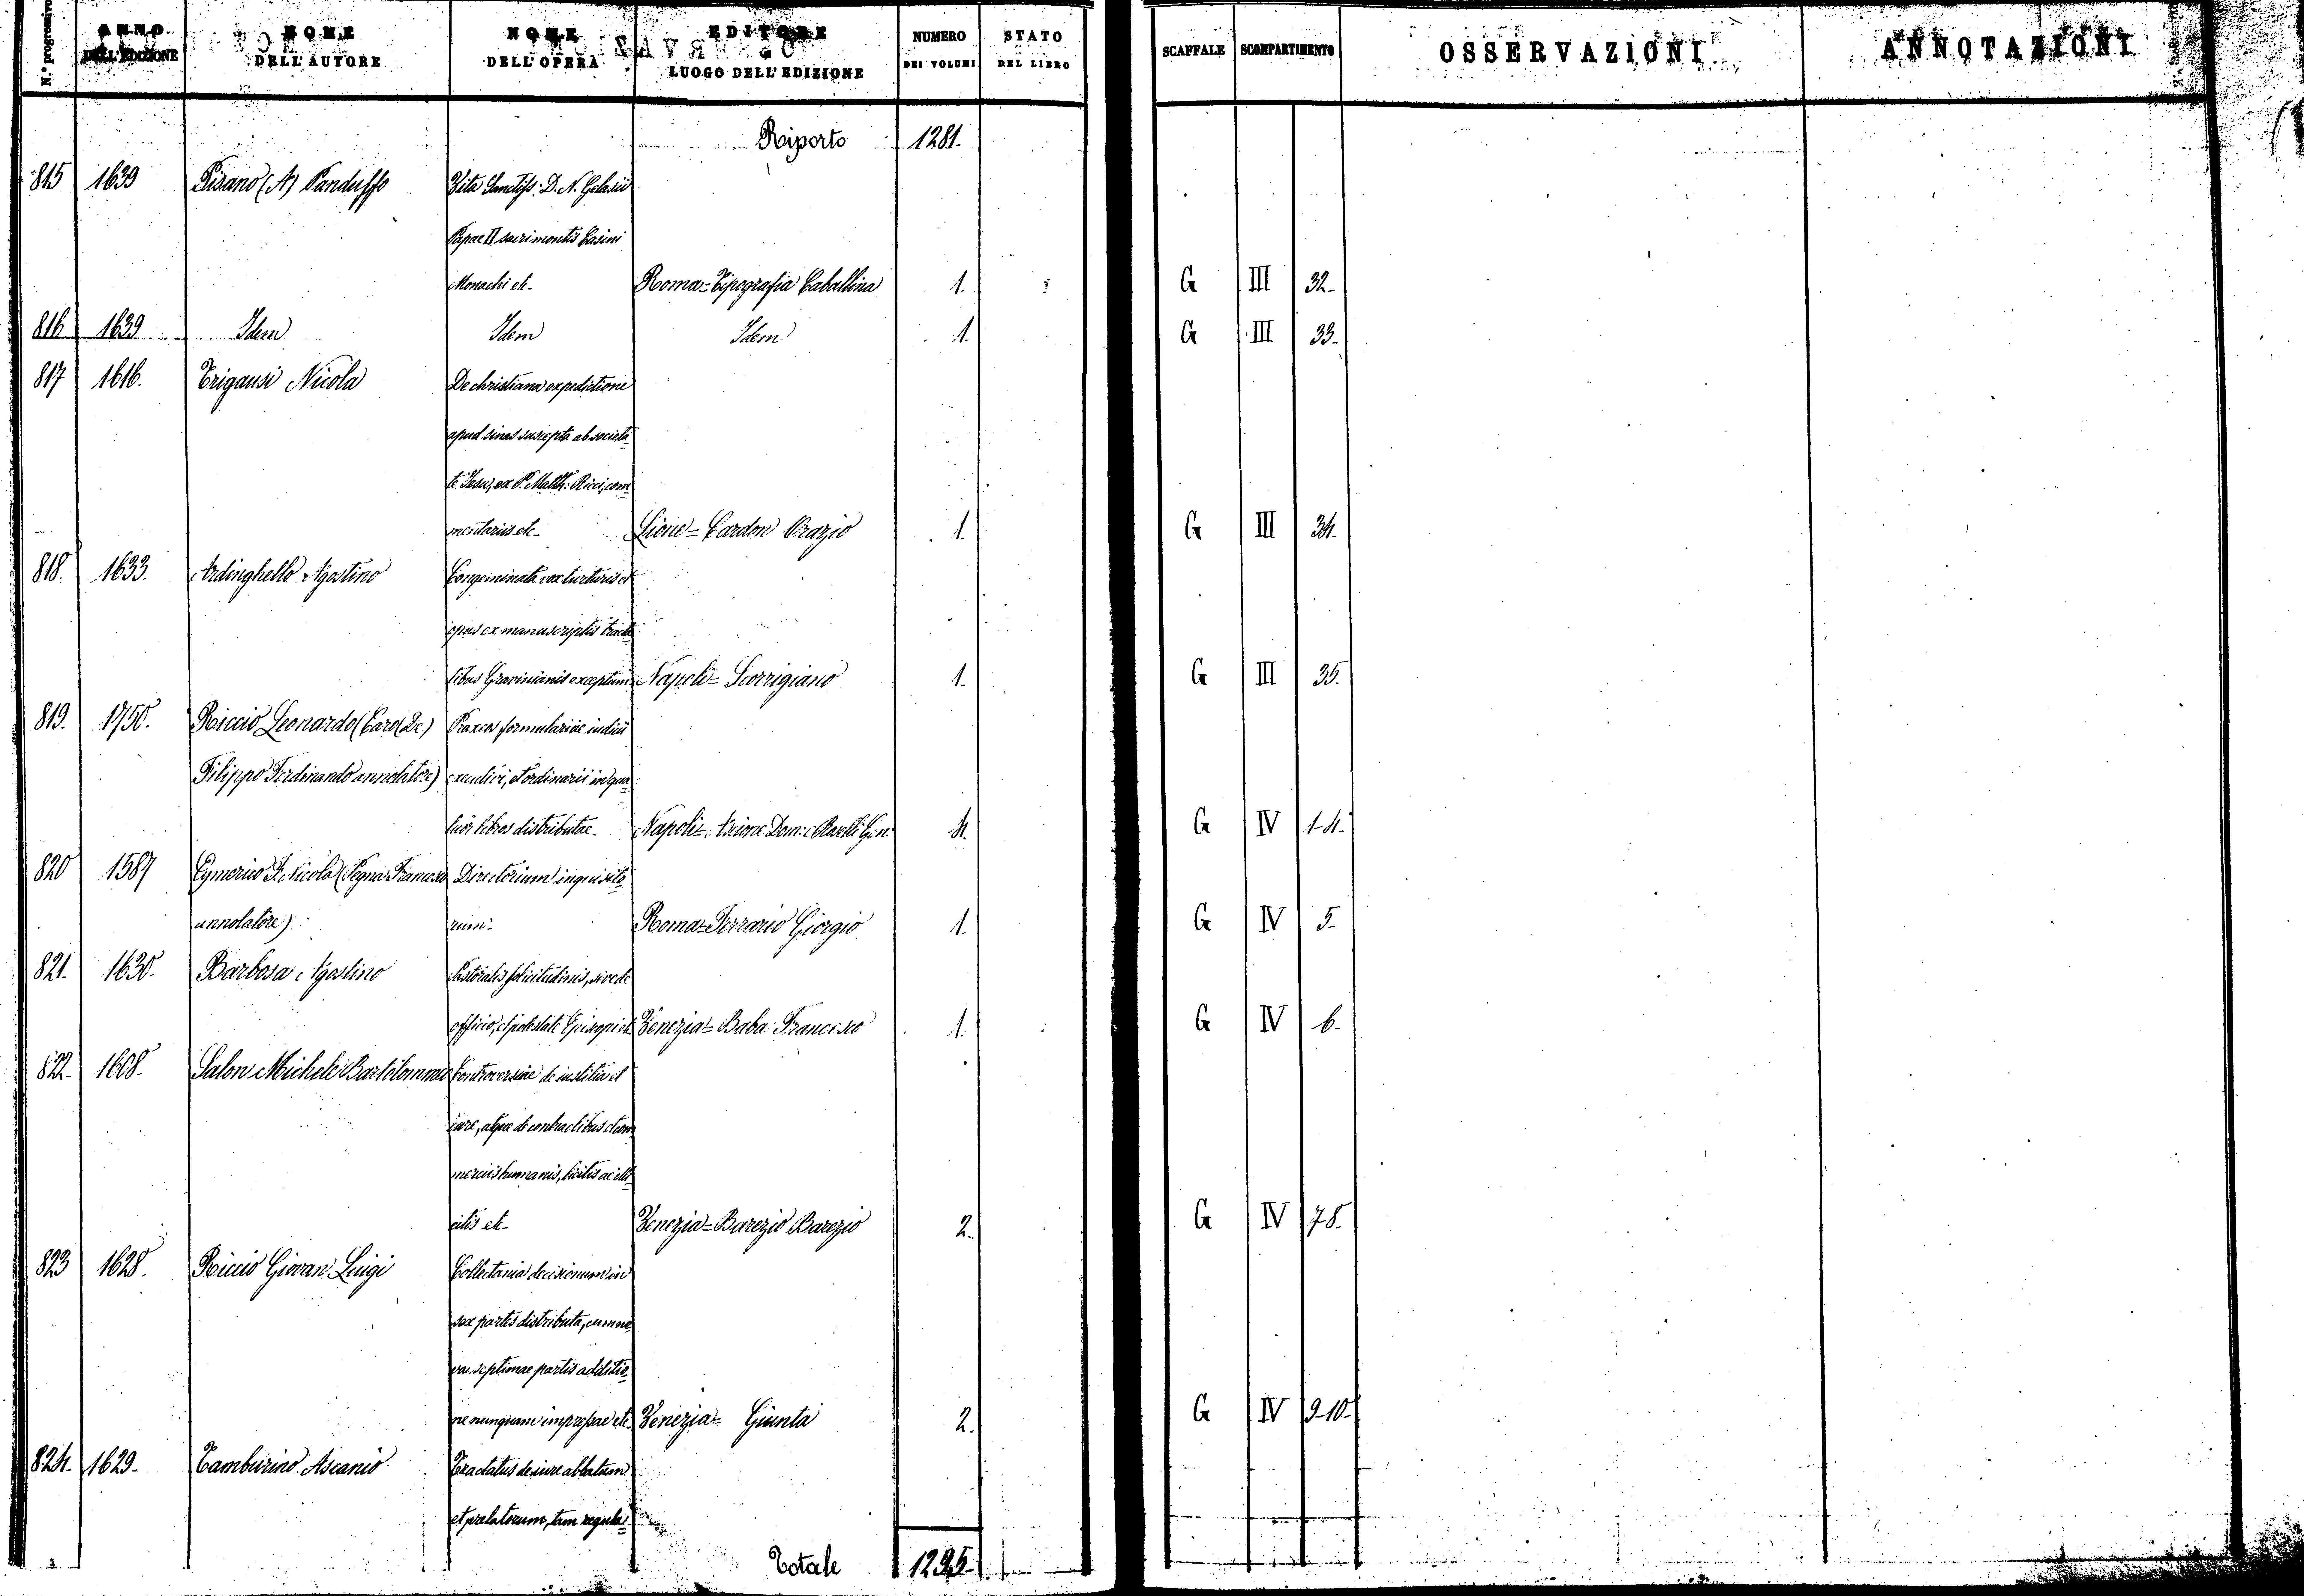 N.° progressivo
ANNO DELL'EDIZIONE
NOME DELL'AUTORE
NOME DELL'OPERA
EDITORE LUOGO DELL'EDIZIONE
NUMERO DEI VOLUMI
STATO DEL LIBRO
SCAFFALE
SCOMPARTIMENTO
OSSERVAZIONI
ANNOTAZIONI
Riporto 1281.
815 1639 Pisano (A) Pandulfo Vita Sanctiss. D. N. Gelasii
Papae II sacri montis Casini
Monachi etc- Roma=Tipografia Caballina 1. G III 32-
816 1639 Idem Idem Idem 1. G III 33-
817 1616. Trigausi Nicola De christiana expeditione
apud sinas suscepta ab societa-
te Jesu, ex P. Matth: Ricci, com-
mentariis etc- Lione= Cardon Orazio 1. G III 34.
818. 1633. Ardinghello Agostino Congeminata vox turturis et
opus ex manuscriptis tracta-
tibus Gravinianis exceptum Napoli= Scorrigiano 1. G III 35.
819. 1750. Riccio Leonardo (Caro (De)
Praxis formulariae iudicii
Filippo Ferdinando annotatore) executivi, et ordinarii in qua-
tuor libros distributae. Napoli= 4. G IV 1-4.
820 1587 Eymerico F. Nicola (Pegna Francesco Directorium inquisito-
annotatore) rum- Roma=Ferrario Giorgio 1. G IV 5-
821. 1630. Barbosa Agostino Pastoralis solicitudinis, sive de
officio, et potestate Episcopi etc Venezia= Baba Francesco 1. G IV 6-
822. 1608. Salon Michele Bartolommeo Controversiae de iustitia et
iure, atque de contractibus et com-
merciis humanis, licitis ac illi-
citis etc- Venezia=Barezio Barezio 2. G IV 78.
823 1628. Riccio Giovan Luigi Collectania decisionum in
sex partes distributa, cum no-
va septimae partis additio-
ne nunquam impressae etc. Venezia= Giunta 2. G IV 9-10-
824. 1629. Tamburino Ascanio Tractatus de iure abbatum
et prelatorum, tam regula-
Totale 1295-